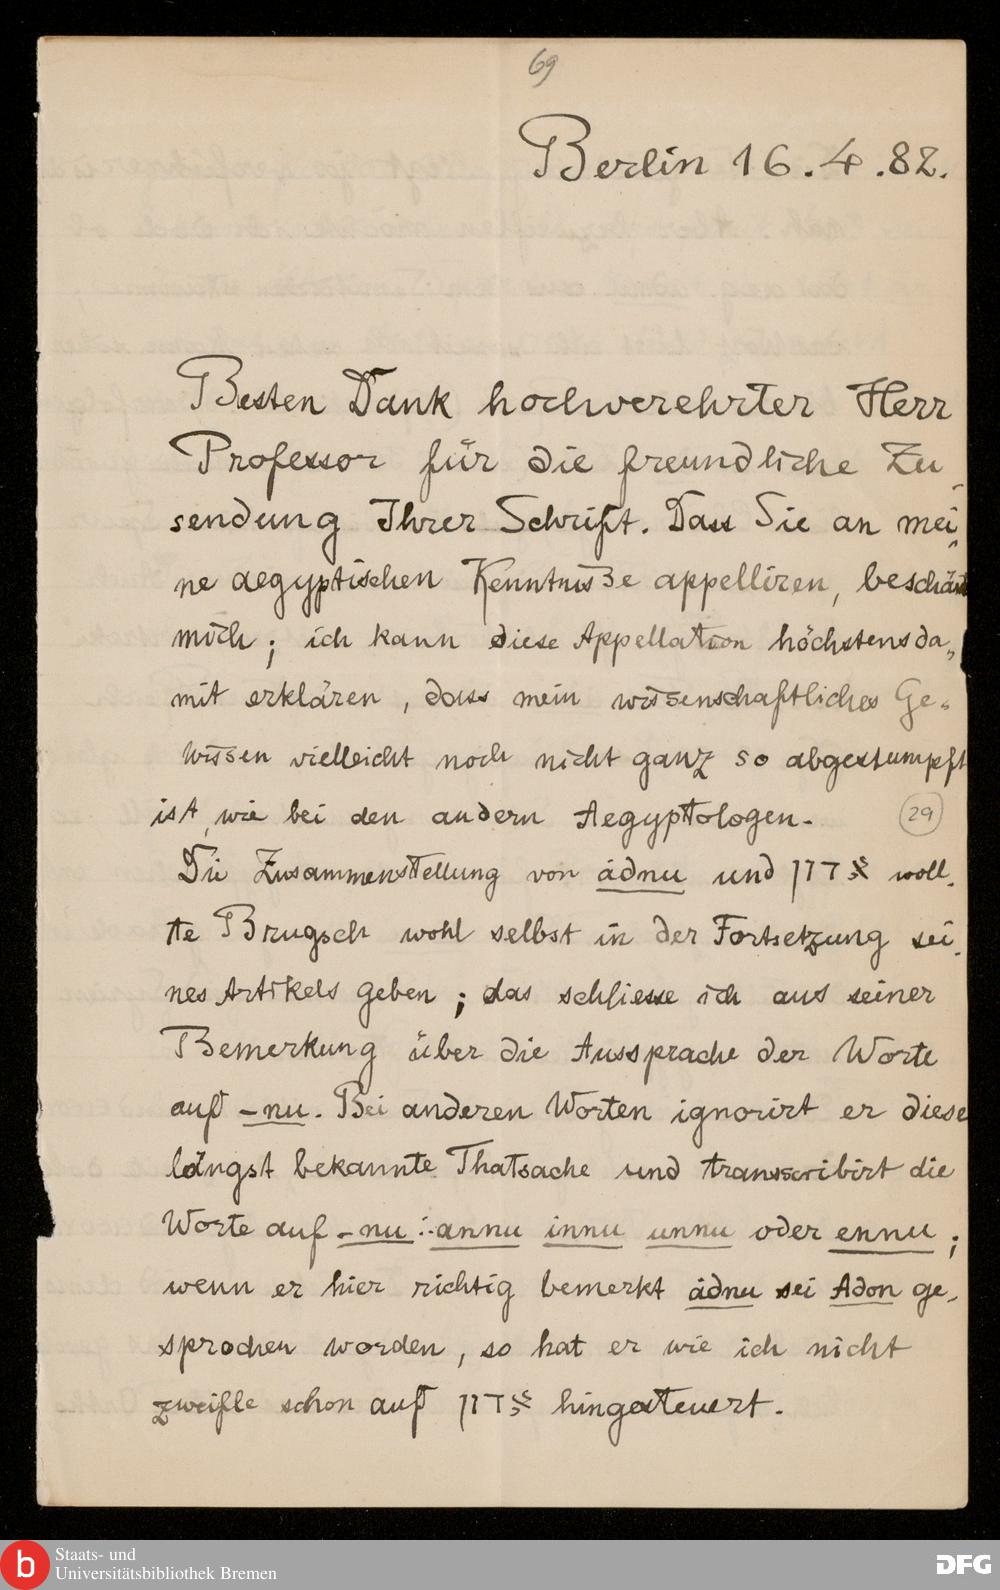 69
Berlin 16.4.82.
Besten Dank hochverehrter Herr
Professor für die freundliche Zu-
sendung Ihrer Schrift. Dass Sie an mei-
ne aegyptischen Kenntnisse appelliren, beschämt
mich; ich kann diese Appellation höchstens da-
mit erklären, dass mein wissenschaftliches Ge-
wissen vielleicht noch nicht ganz so abgestumpft
ist, wie bei den andern Aegyptologen.
29
Die Zusammenstellung von ádnu und אדון woll-
te Brugsch wohl selbst in der Fortsetzung sei-
nes Artikels geben; das schliesse ich aus seiner
Bemerkung über die Aussprache der Worte
auf -nu. Bei anderen Worten ignorirt er diese
längst bekannte Thatsache und transscribirt die
Worte auf -nu: annu innu unnu oder ennu;
wenn er hier richtig bemerkt ádnu sei Adon ge-
sprochen worden, so hat er wie ich nicht
zweifle schon auf אדון hingesteuert.
b
Staats- und
Universitätsbibliothek Bremen
DFG